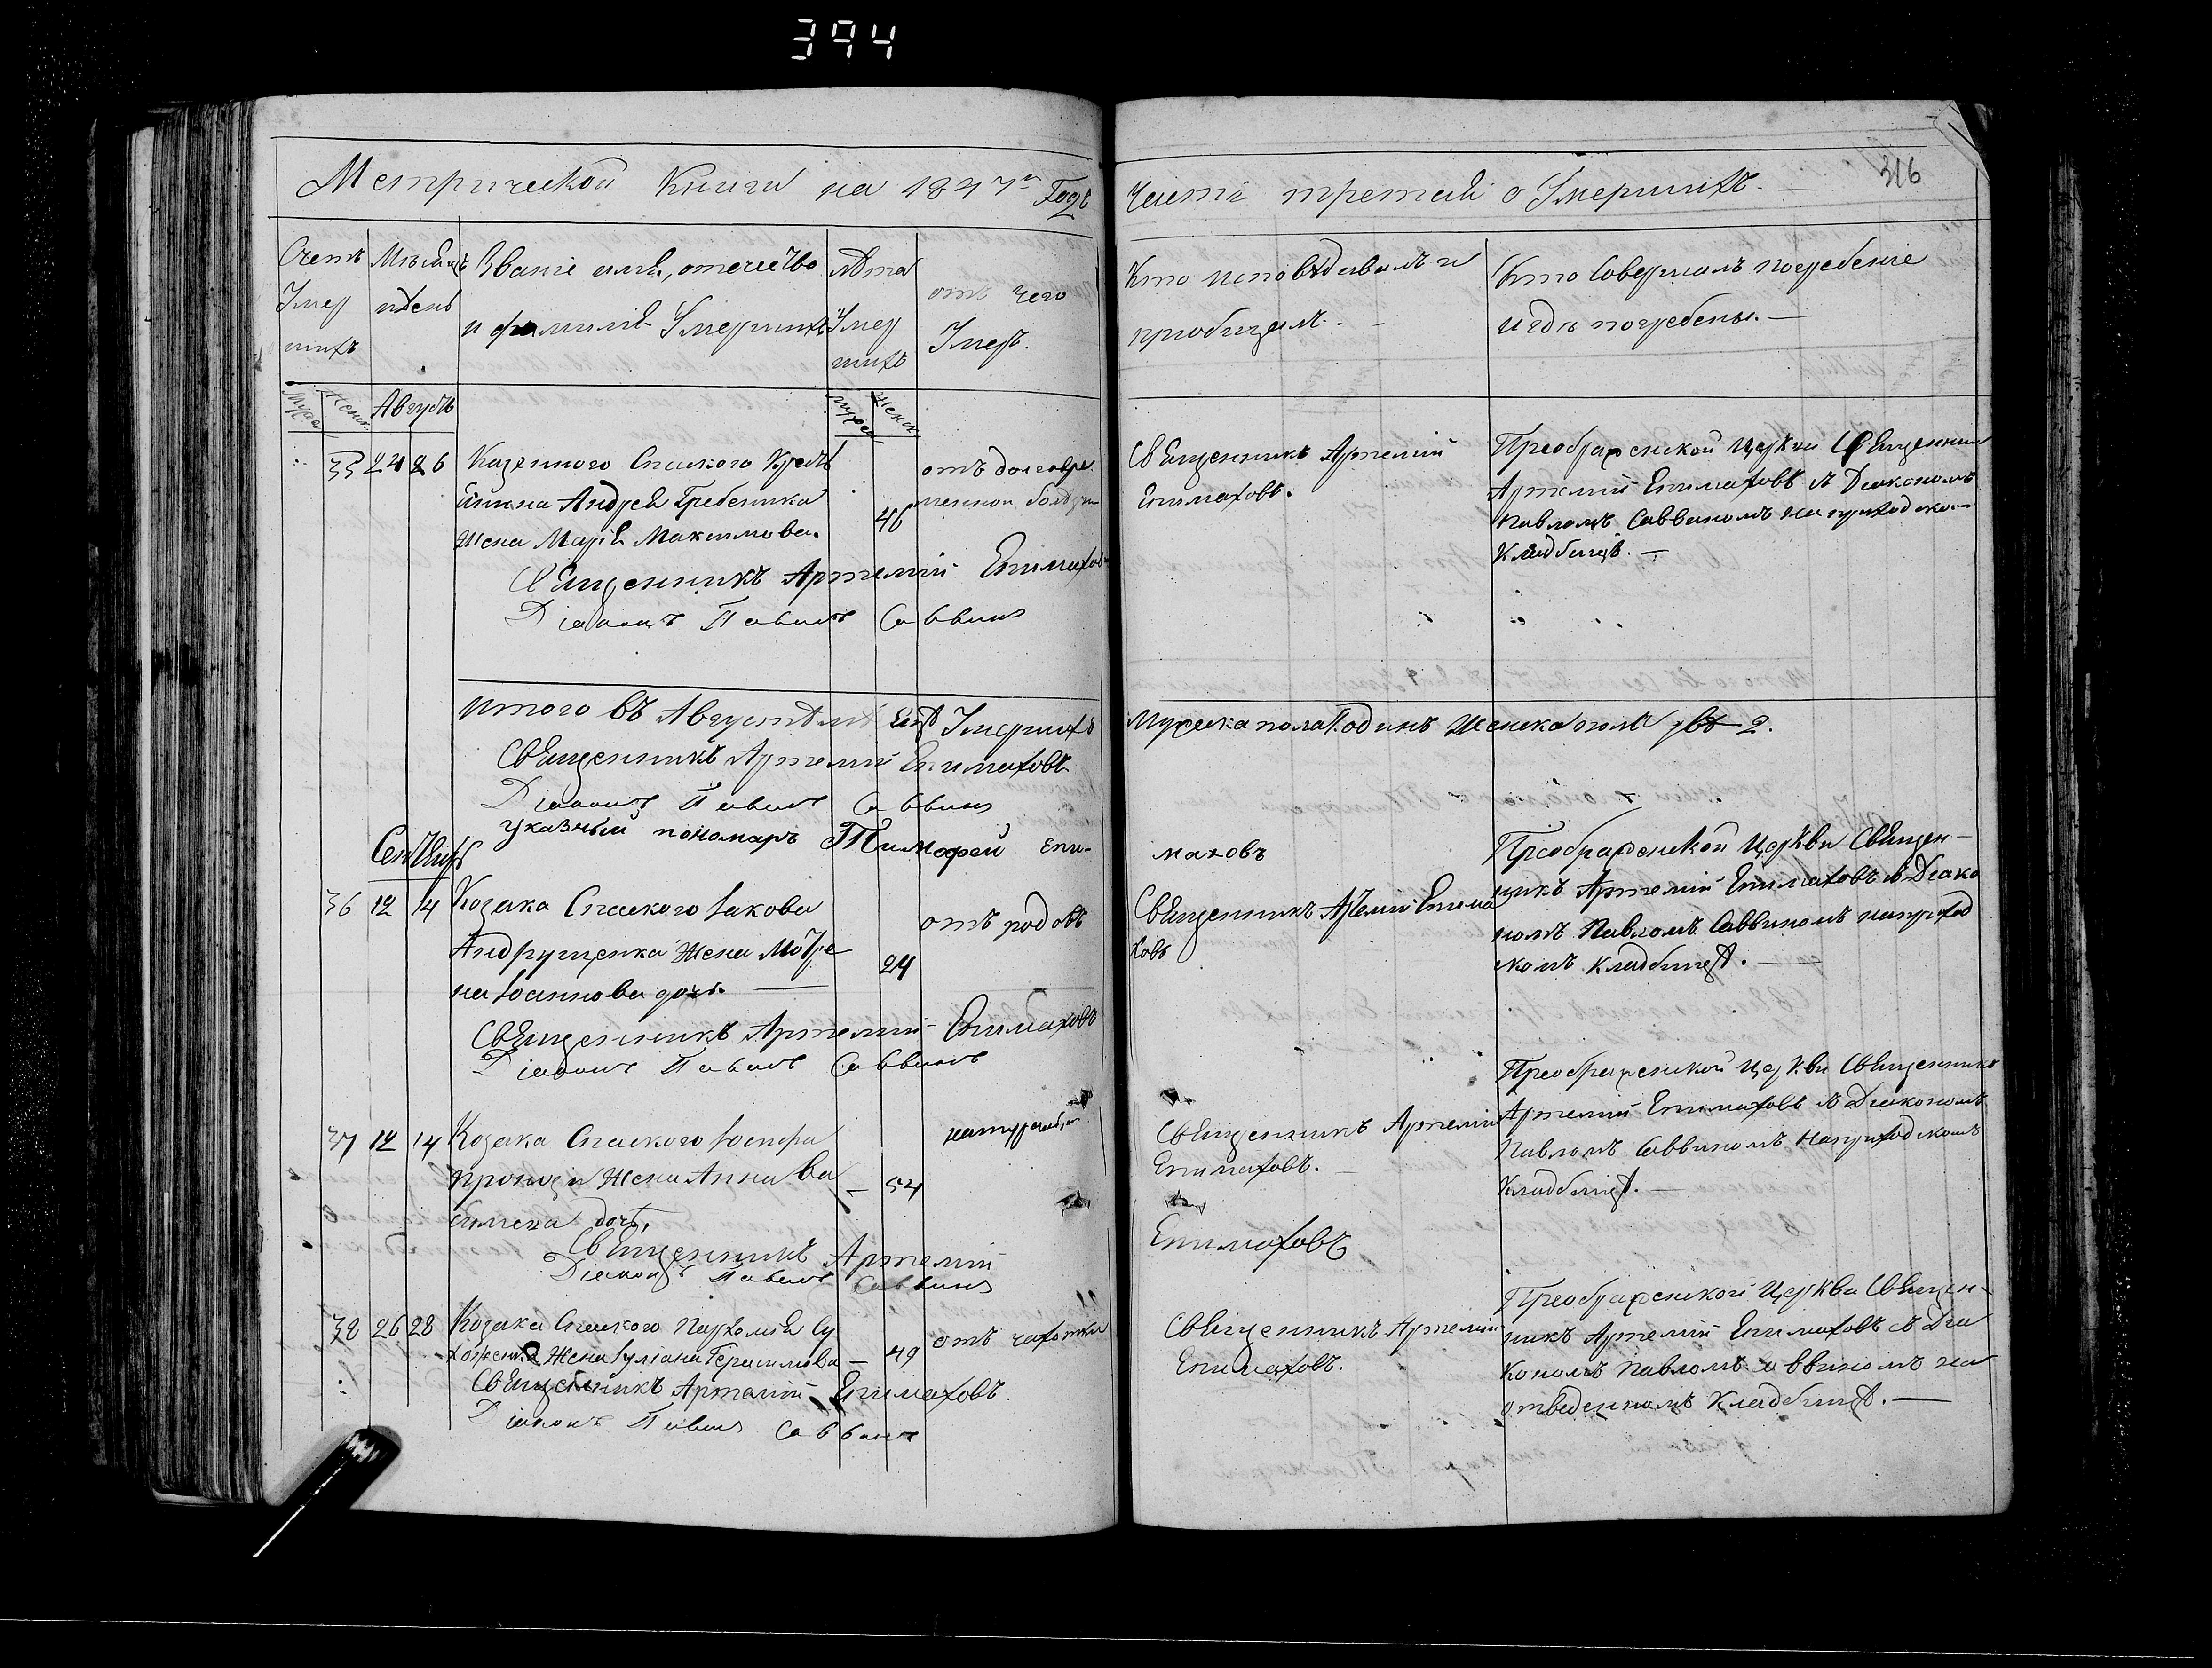 394
Метрической Книги на 1847го Годъ
Части третьей о Умершихъ.
316
Счетъ Умер шихъ
Мѣсяцъ и день
Званіе имя, отечество и фамилія Умершихъ
Лѣта Умер шихъ
отъ чего Умеръ.
Кто исповѣдывалъ и пріобщалъ.
Кто Совершалъ погребеніе и гдѣ погребены.
Мужеска
Женск.
Августъ
Мужеск
Женск
35 24 26 Казенного Спаского
Андрея Гребенника
жена Марія Максимова.
46
отъ долговре
менной болѣзни
Священникъ Артемій
Епимаховъ.
Преображенской Церкви Священникъ
Артемій Епимаховъ съ Діакономъ
Павломъ Саввиномъ на приходско
Кладбищѣ.
Священникъ Артемій Епимаховъ
Діаконъ Павелъ Саввинъ
итого въ Августѣ мѣсяцѣ Умершихъ
Мужеска пола 1 один Женска пола двѣ 2.
Священникъ Артемій Епимаховъ
Діаконъ Павелъ Саввинъ
указный пономарь Тимофей Епи-
маховъ
36 12 14 Козака Спаского Іакова
Андрущенка Жена Мотре
на Іоаннова дочь.
24
отъ родовъ
Священникъ Артемій Епима
ховъ
Преображенской Церкви Священ-
никъ Артемій Епимаховъ съ Діако
номъ Павломъ Саввиномъ на приход
скомъ Кладбищѣ.
Священникъ Артемій Епимаховъ
Діаконъ Павелъ Саввинъ
37 12 14 Козака Спаского Іосифа
Жена Анна Ва
силиева дочь,
54
Священникъ Артемій
Епимаховъ.
Преображенской Церкви Священникъ
Артемій Епимаховъ съ Діакономъ
Павломъ Саввиномъ на приходскомъ
Кладбищѣ.
Священникъ Артемій
Епимаховъ
Діаконъ Павелъ Саввинъ
38 26 28 Козака Спаского Пархомія Су
Жена Іуліана Герасимова
49
отъ чахотки
Священникъ Артемій
Епимаховъ.
Преображенской Церкви Священ-
никъ Артемій Епимаховъ съ Діа
кономъ Павломъ Саввиномъ на
отведенномъ Кладбищѣ.
Священникъ Артемій Епимаховъ
Діаконъ Павелъ Саввинъ